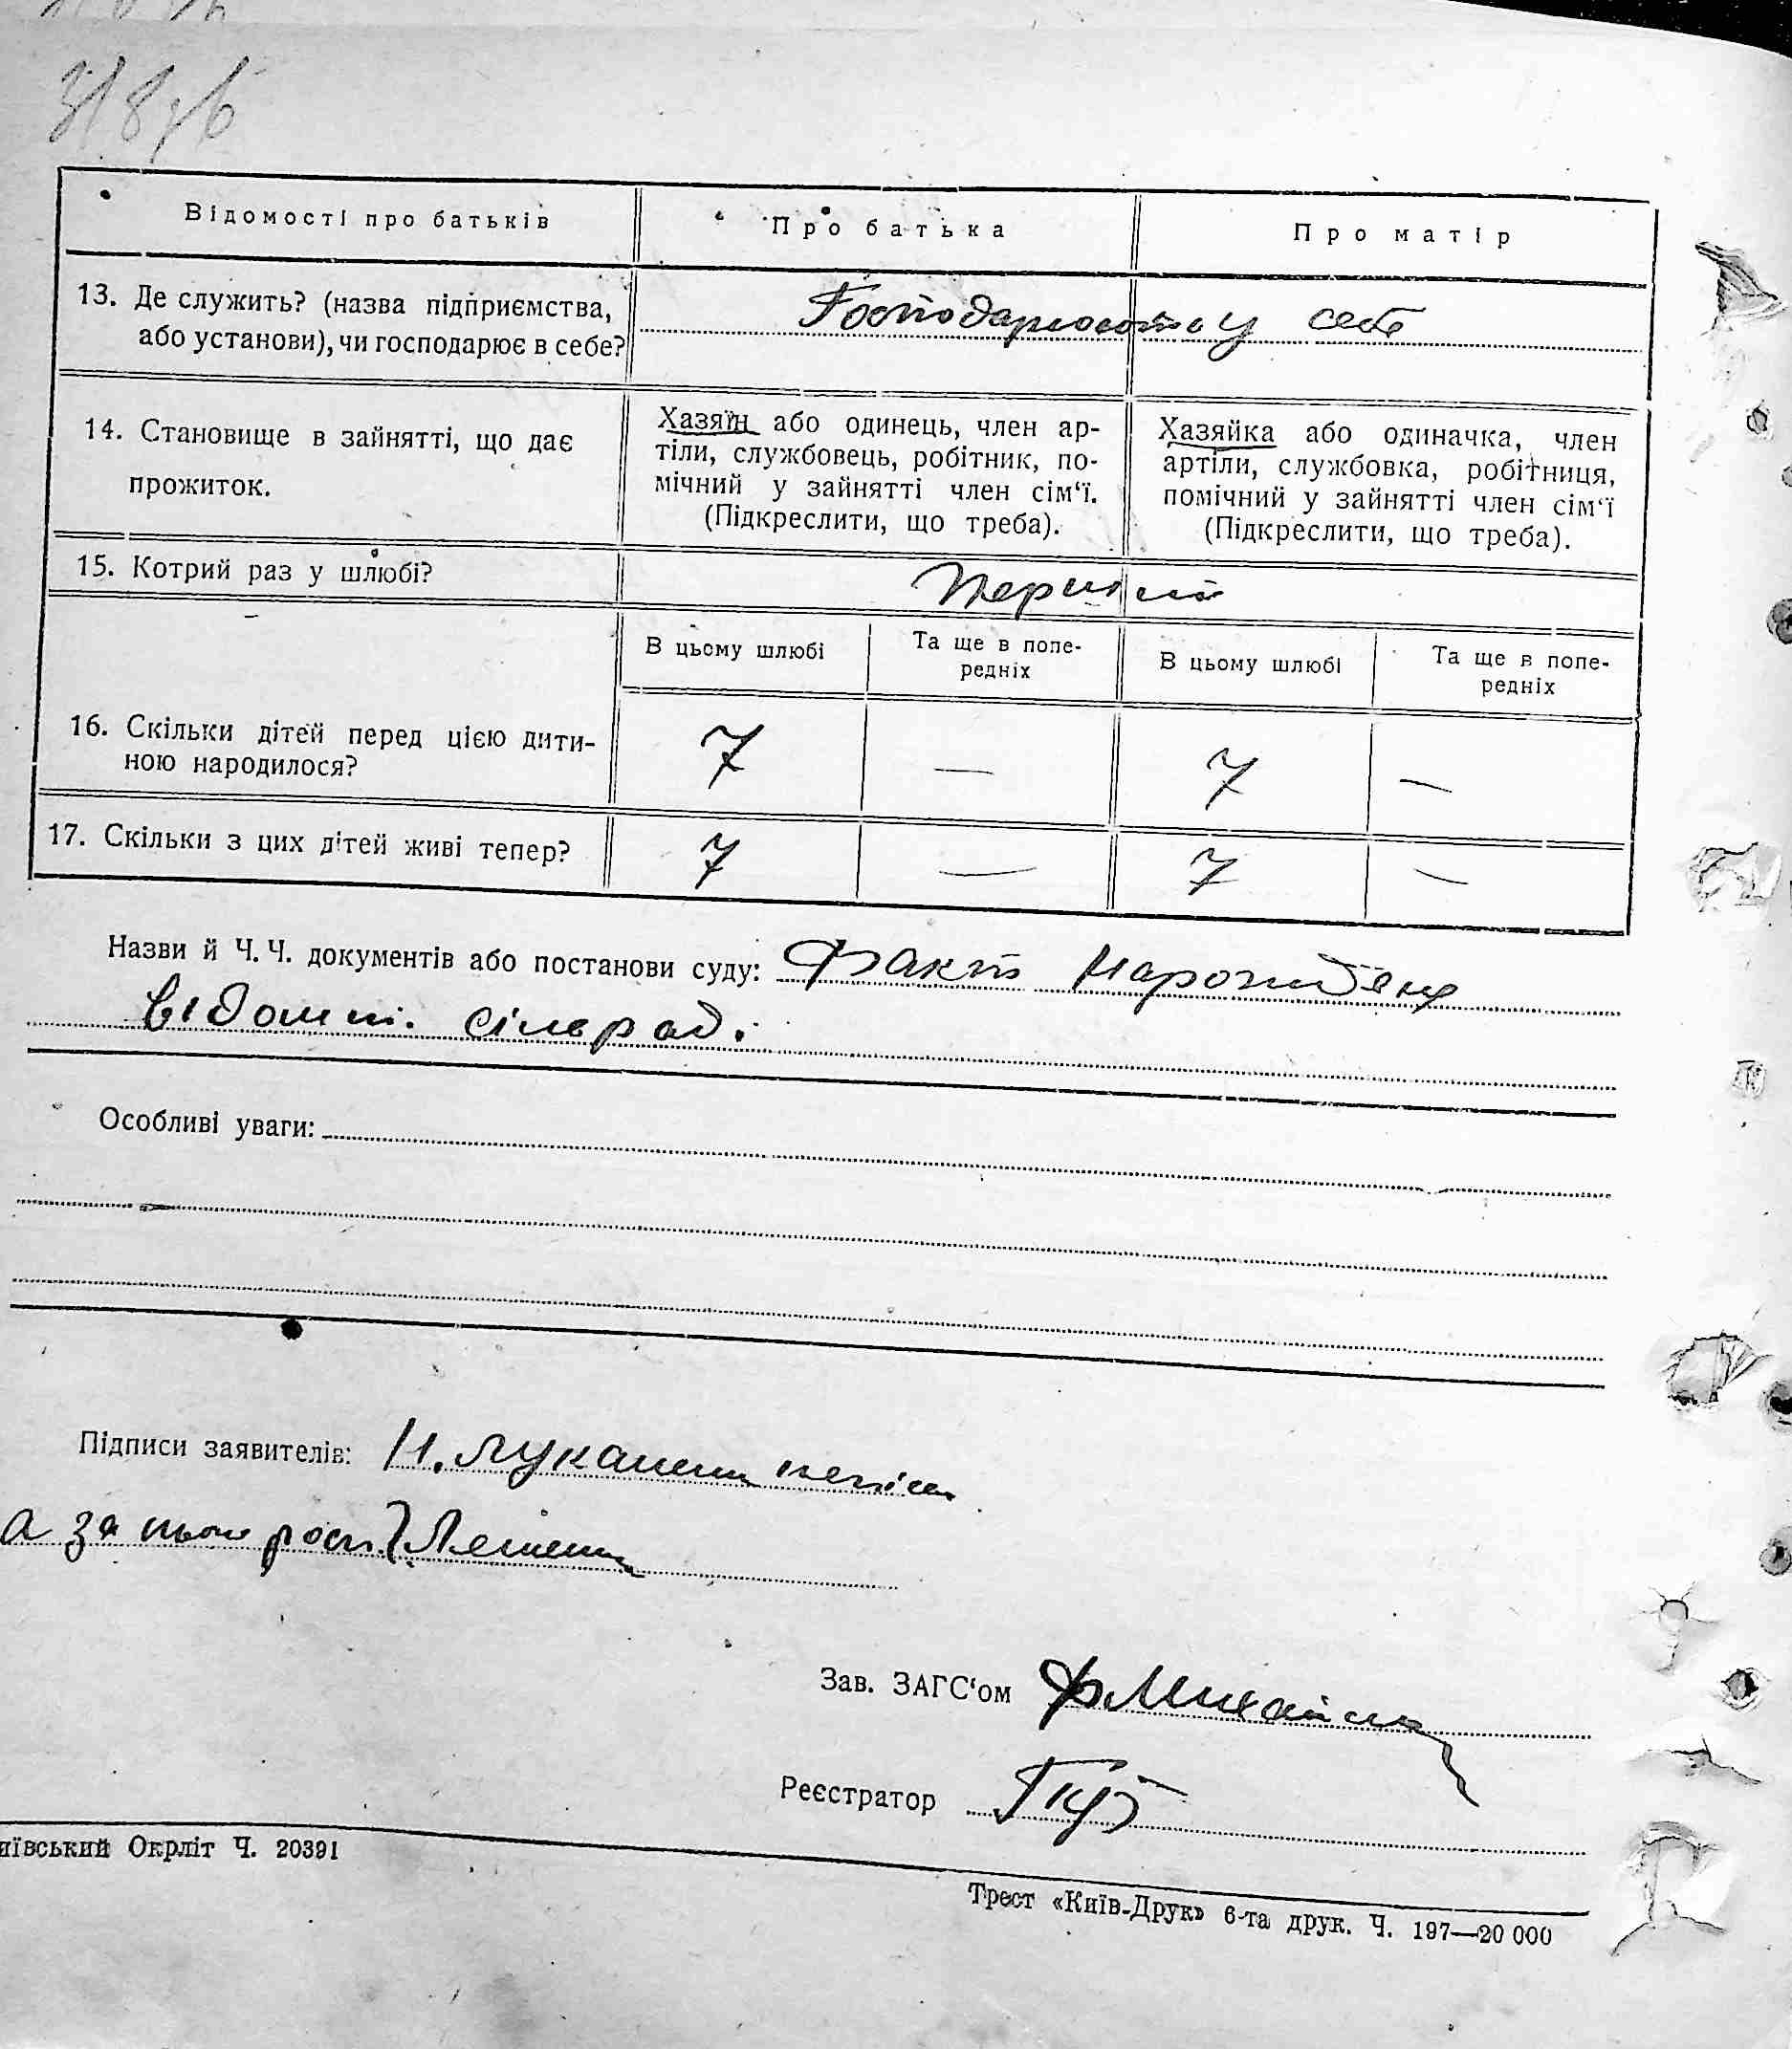 318 зв
Відомості про батьків
Про батька
Про матір
13. Де служить? (назва підприємства,
або установи), чи господарює в себе?
Господарюють у себе
14. Становище в зайнятті, що дає
прожиток.
Хазяїн або одинець, член ар-
тіли, службовець, робітник, по-
мічний у зайнятті член сім‘ї.
(Підкреслити, що треба).
Хазяйка або одиначка, член
артіли, службовка, робітниця,
помічний у зайнятті член сім‘ї
(Підкреслити, що треба).
15. Котрий раз у шлюбі?
Перший
В цьому шлюбі
Та ще в попе-
редніх
В цьому шлюбі
Та ще в попе-
редніх
16. Скільки дітей перед цією дити-
ною народилося?
7 — 7 —
17. Скільки з цих дітей живі тепер?
7 — 7 —
Назви й Ч. Ч. документів або постанови суду: Факт народження
відомий сільраді
Особливі уваги:
Підписи заявителів: Н. Лукашенко
а за нього розп.
Зав. ЗАГС‘ом
Реєстратор
иївський Окрліт Ч. 20391
Трест «Київ-Друк» 6-та друк. Ч. 197—20 000